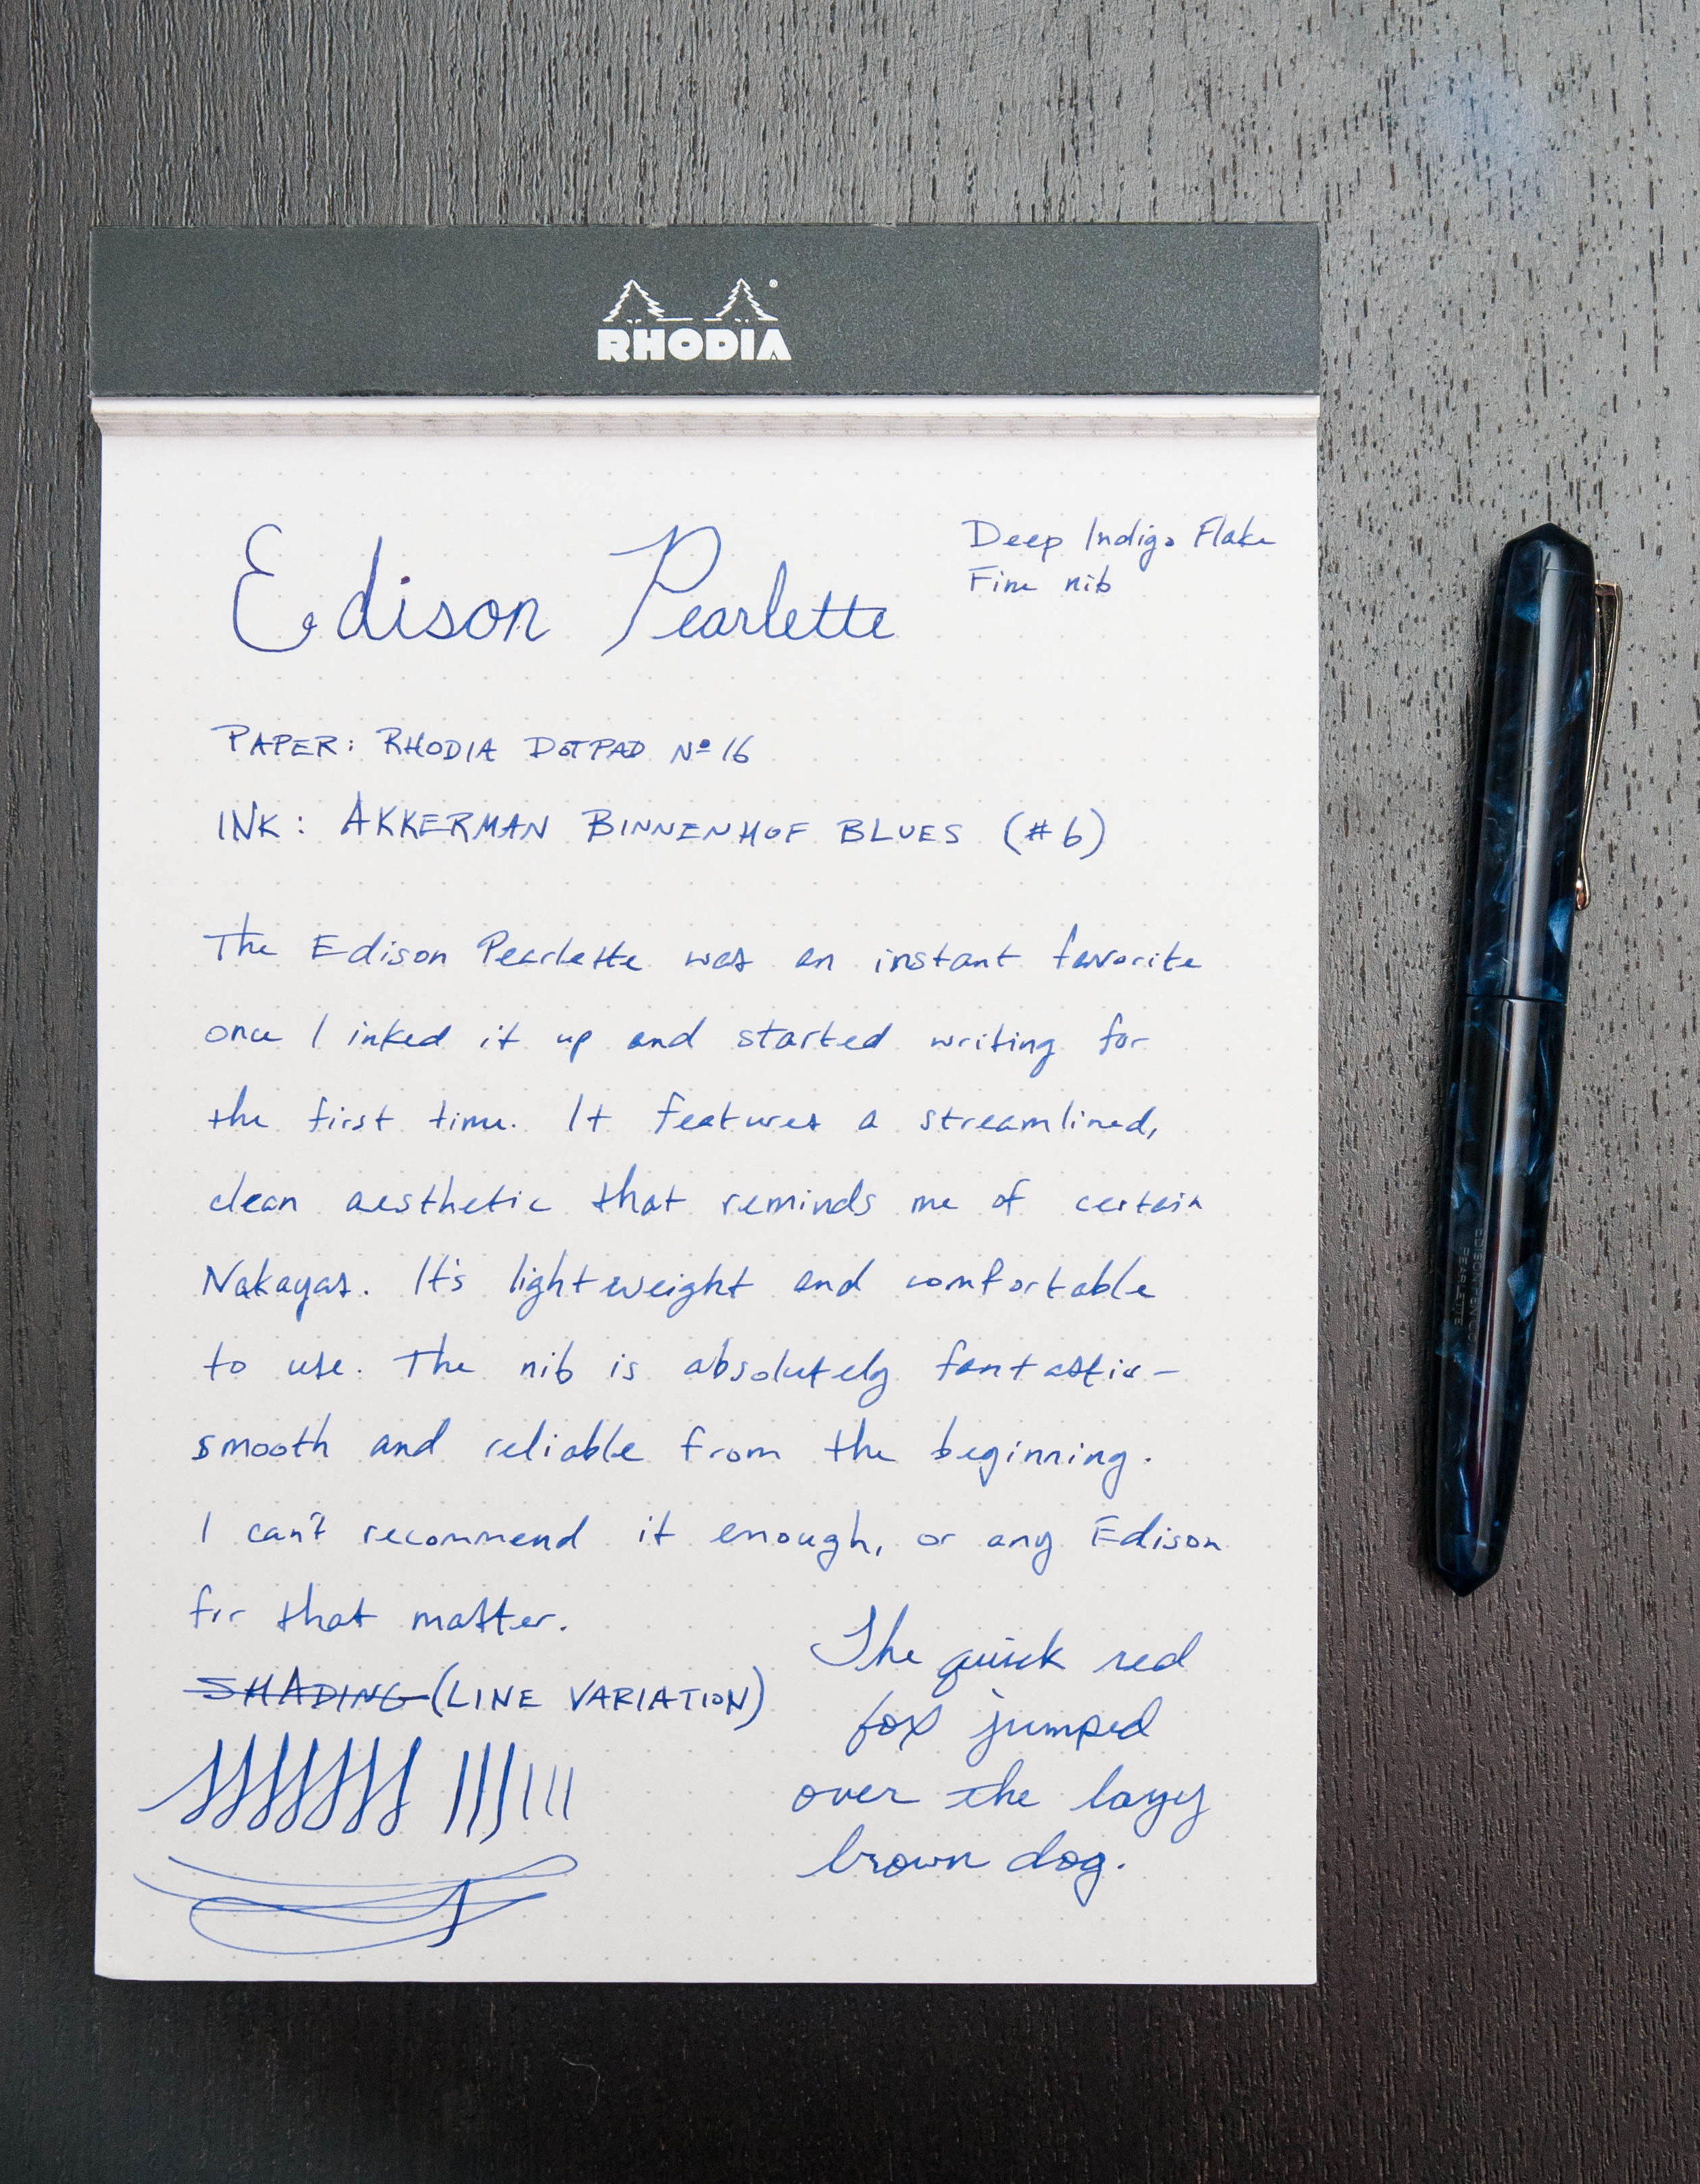 RHODIA
Edison Pearlette
Deep Indigo Flake
Fine nib
PAPER: RHODIA DOTPAD Nº 16
INK: AKKERMAN BINNENHOF BLUES (#6)
The Edison Pearlette was an instant favorite
once I inked it up and started writing for
the first time. It features a streamlined,
clean aesthetic that reminds me of certain
Nakayas. It's lightweight and comfortable
to use. The nib is absolutely fantastic–
smooth and reliable from the beginning.
I can't recommend it enough, or any Edison
for that matter.
SHADING (LINE VARIATION)
The quick red
fox jumped
over the lazy
brown dog.
EDISON PEN CO.
PEARLETTE